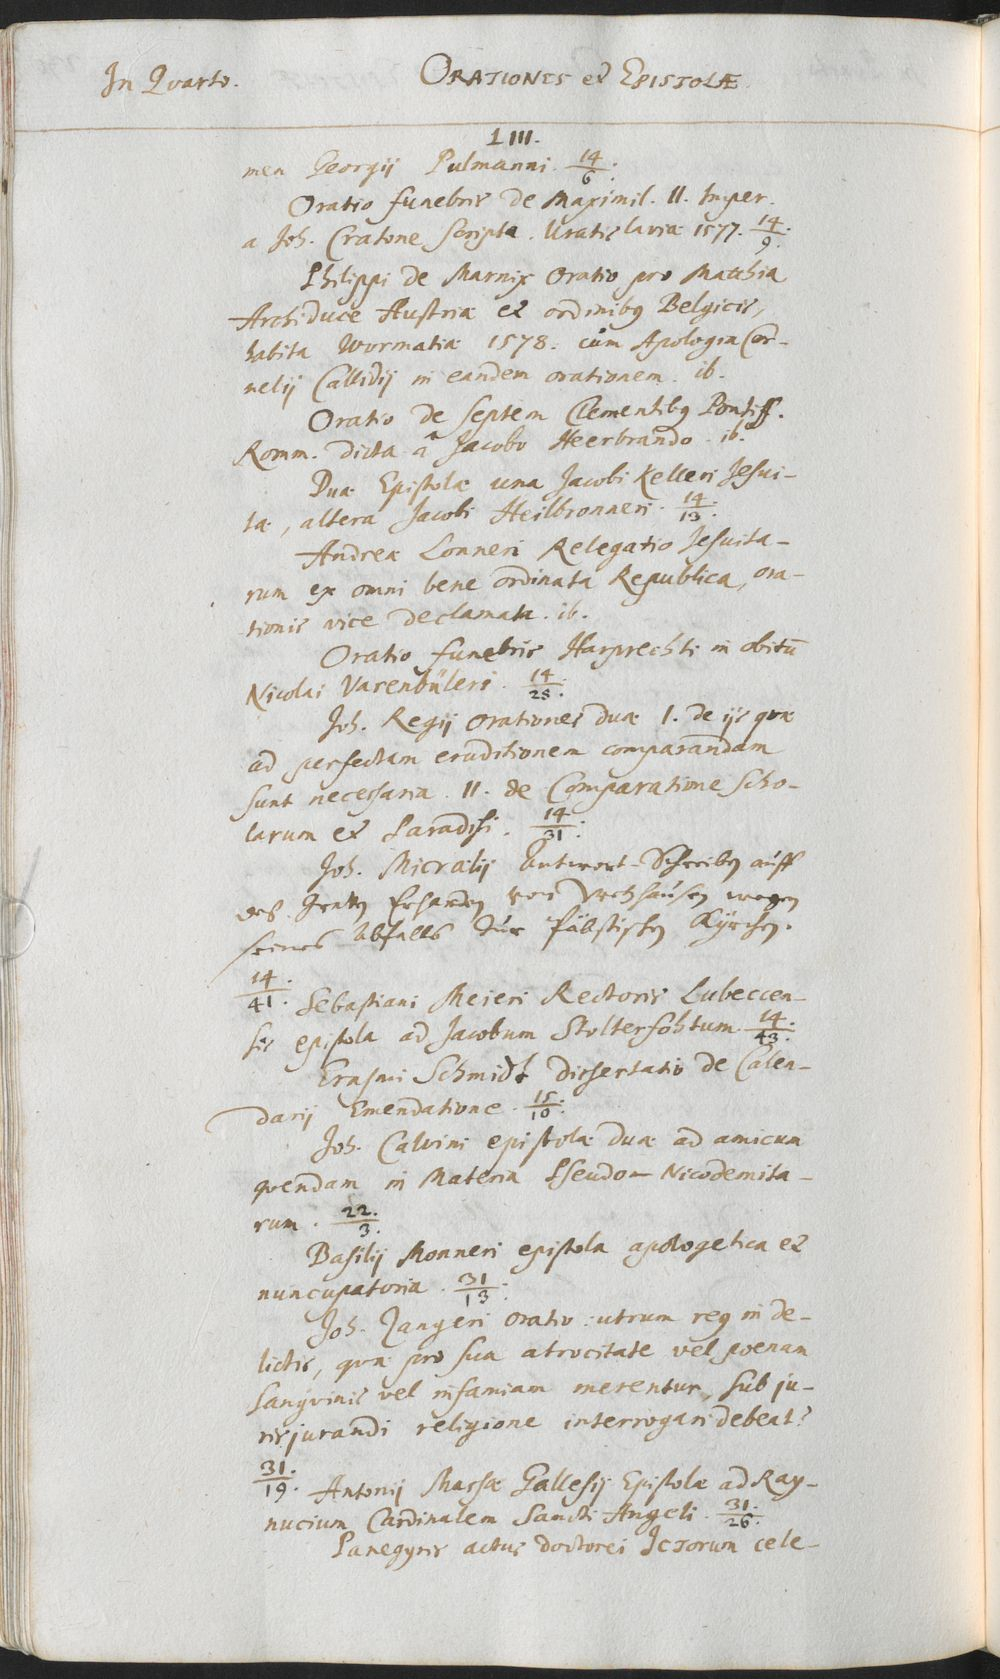 In Quarto. ORATIONES et EPISTOLÆ
LIII.
men Georgij Pulmanni. 14/6.
Oratio funebris de Maximil. II. Imper.
a Joh. Cratone scripta. Uratislaviæ 1577. 14/9.
Philippi de Marnix Oratio pro Matthia
Archiduce Austriæ et ordinibq Belgicis,
habita Wormatiæ 1578. cùm Apologia Cor-
nelij Callidij in eandem orationem. ib.
Oratio de septem Clementibq Pontiff.
Romm. dicta â Jacobo Heerbrando. ib.
Duæ Epistolæ una Jacobi Kelleri Jesui-
tæ, altera Jacobi Heilbronneri. 14/13.
Andreæ Lonneri Relegatio Jesuita-
rum ex omni bene ordinata Republica, ora-
tionis vice declamata. ib.
Oratio funebris Harprechti in obitū
Nicolai Varenbüleri. 14/25.
Joh. Regij Orationes duæ I. de ijs quæ
ad perfectam eruditionem comparandam
sunt necessaria. II. de Comparatione Scho-
larum et Paradisi. 14/31.
Joh. Micralij Antwort-Schreiben auff
des Graffen von wegen
seines Abfalls zur Päbstischen Kyrchen.
14/41. Sebastiani Meieri Rectoris Lubeccen-
sis epistola ad Jacobum Stolterfohtum. 14/43.
Erasmi Schmidt dissertatio de Calen-
darij Emendatione. 15/10.
Joh. Calvini epistolæ duæ ad amicum
quendam in Materia Pseudo-Nicodemita-
rum. 22./3.
Basilij Monneri epistola apologetica et
nuncupatoria. 31/13.
Joh. Zangeri Oratio: utrum req in de-
lictis, quæ pro sua atrocitate vel poenam
sangvinis vel infamiam merentur, sub ju-
risjurandi religione interrogari debeat?
31./19. Antonij Massæ Gallesij Epistolæ ad Ray-
nucium Cardinalem Sancti Angeli. 31./26.
Panegyris actus doctorei JCTorum cele-